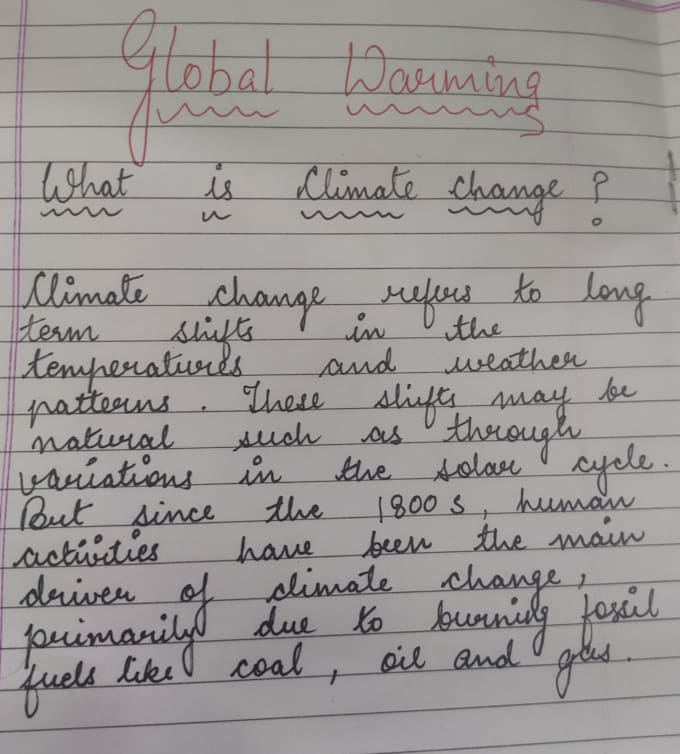 Global Warming
What is Climate change ?
Climate change refers to long
term shifts in the
temperatures and weather
patterns. These shifts may be
natural such as through
variations in the solar cycle.
But since the 1800s, human
activities have been the main
driver of climate change,
primarily due to burning fossil
fuels like coal, oil and gas.